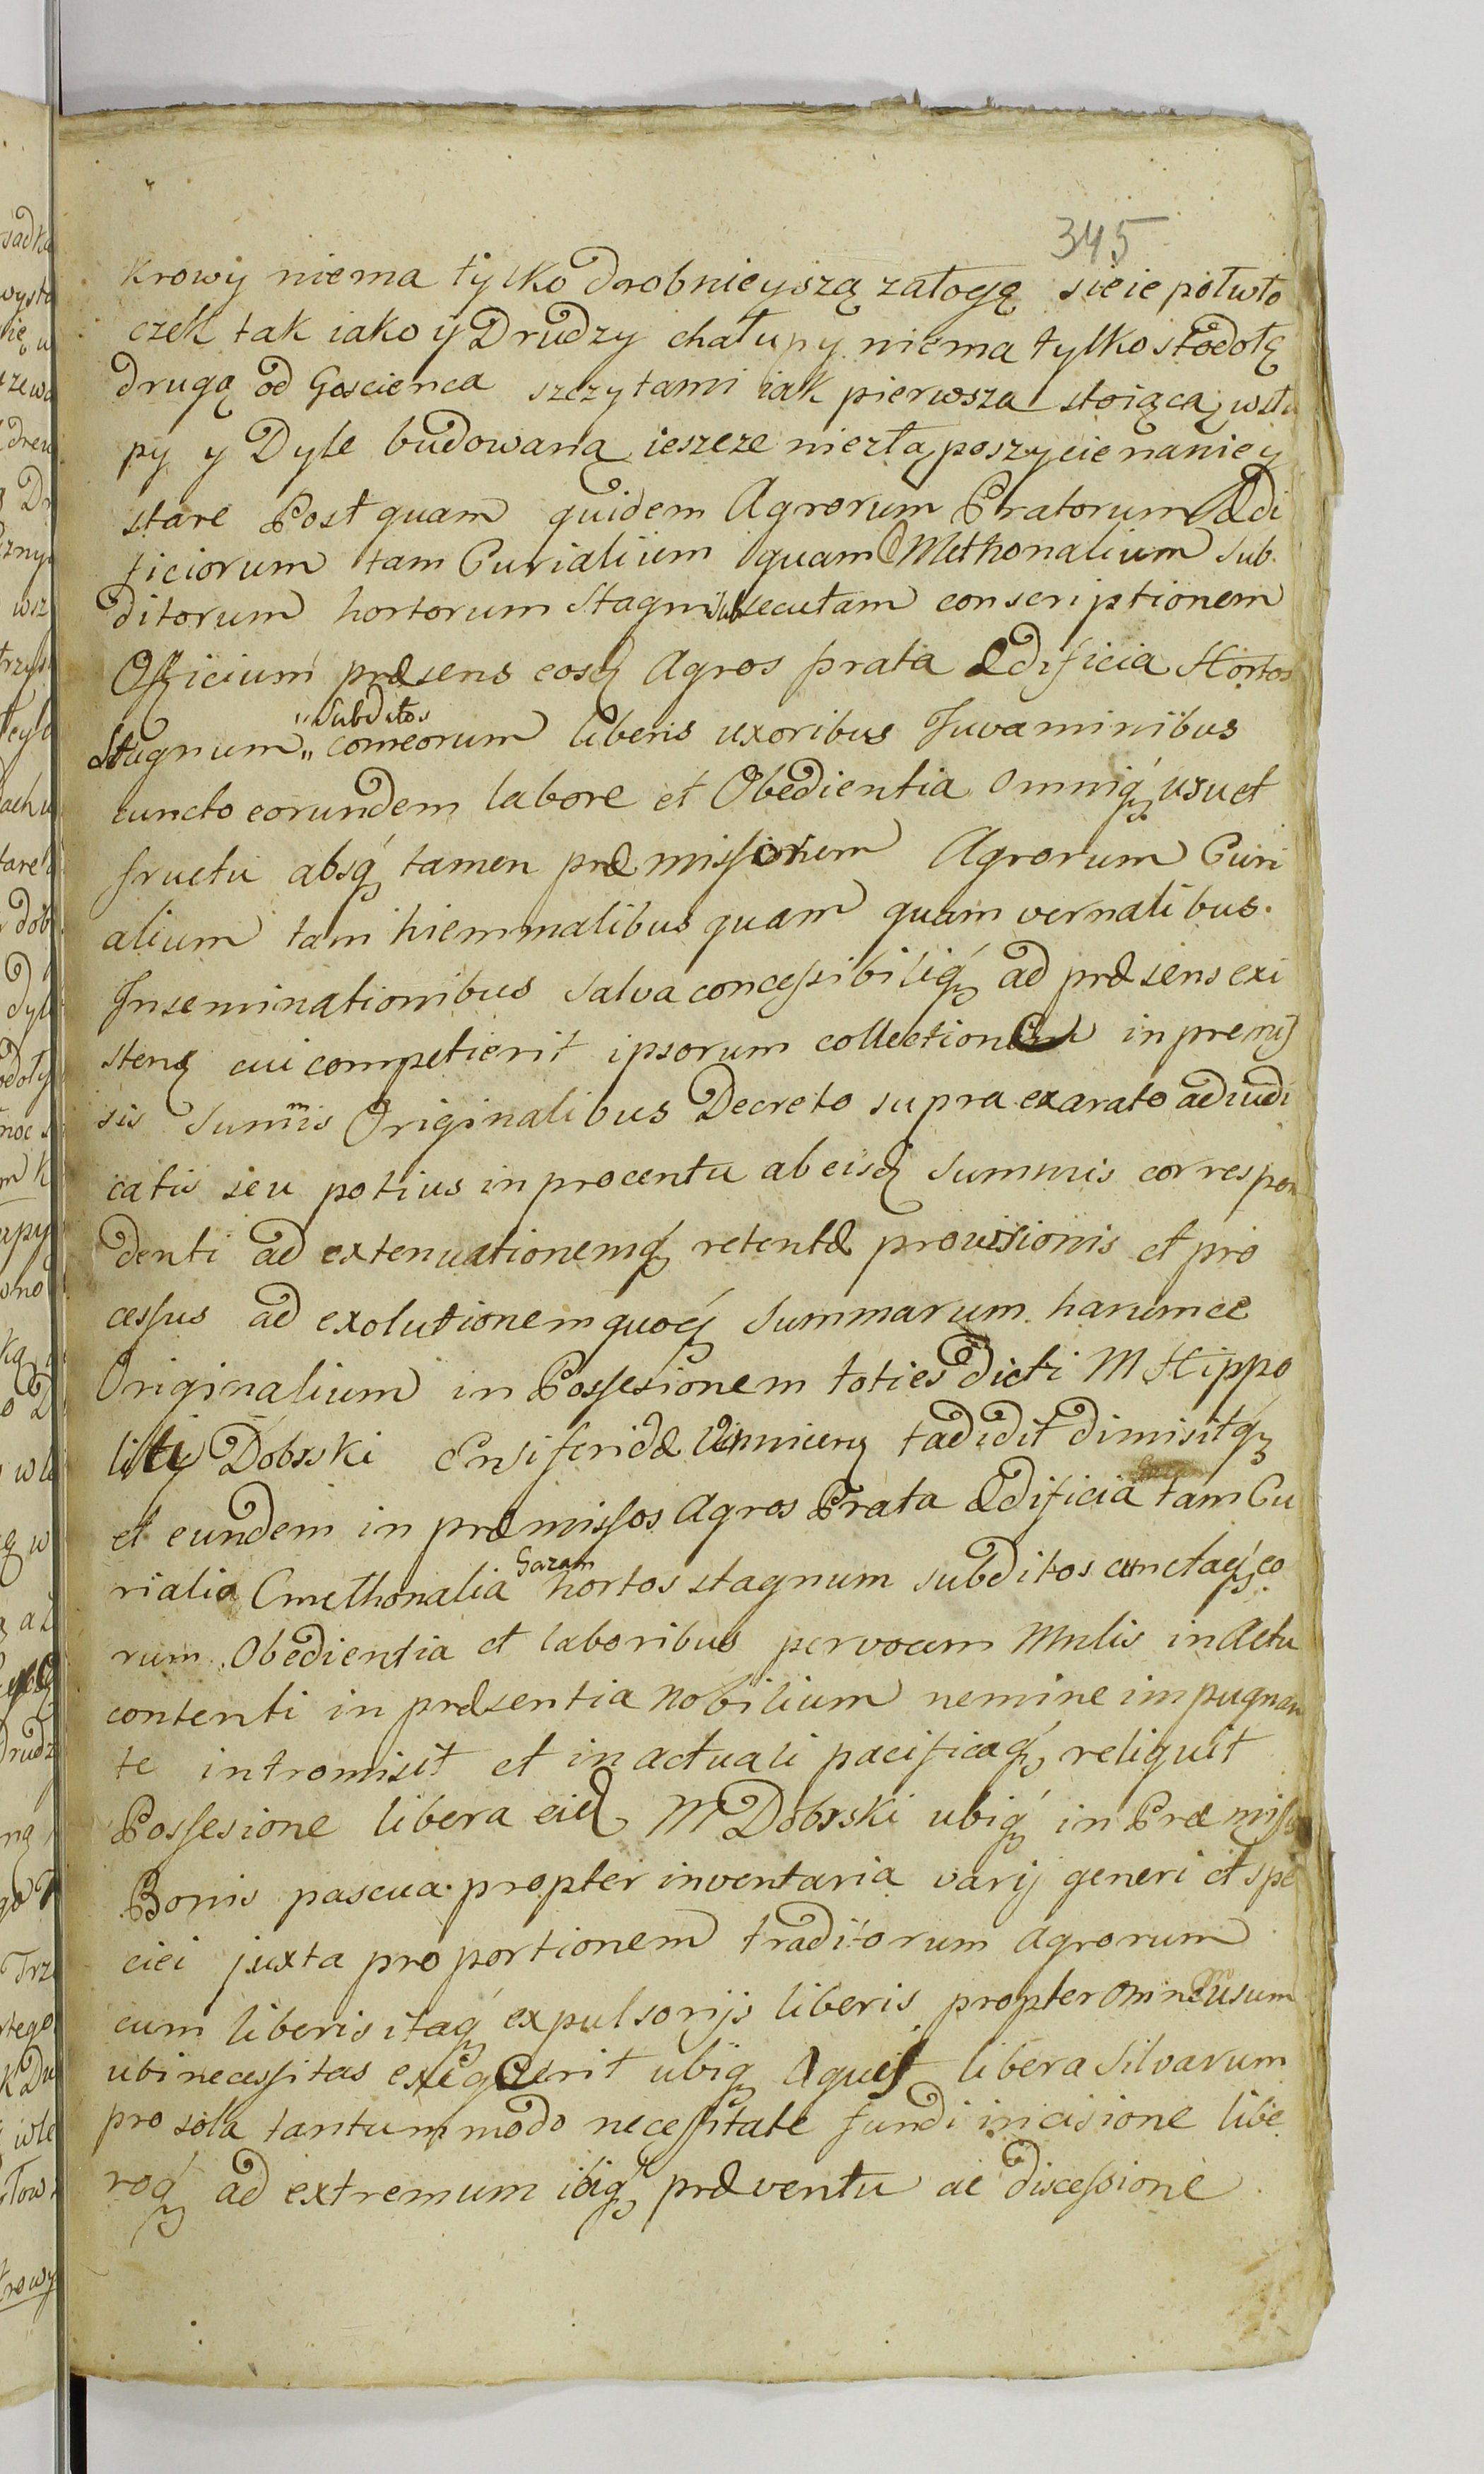 345
krowy niema tylko drobnieyszą załogę sieie połwło
czek tak iako y Drudzy chałupy niema tylko stodołę
drugą od Goscienca szczytami iak pierwsza stoiącą wsłu
py y Dyle budowaną ieszcze niezłą poszycie naniey
stare Postquam quidem Agrorum Pratorum Ædi
ficiorum tam Curialium quam Cmethonalium Sub
ditorum hortorum Stagni subsecutam conscriptionem
Officium præsens eosq Agros prata Ædificia Hortos
Stagnum „ Subditos cumeorum liberis uxoribus Juvaminibus
cuncto eorundem labore et Obedientia omniq usu et
fructu absq tamen præmissorum Agrorum Curi
alium tam hiemmalibus quam quam vernalibus
Inseminationibus Salva concessibiliq ad præsens exi
stent cui competierit ipsorum collectione in premis
sis Summis Originalibus Decreto supra exarato adiudi
catis seu potius in procentu ab eisd Summis correspon
denti ad extenuationemq retentæ provisionis et pro
cessus ad exolutionem quoq Summarum harumce
Originalium in Possesionem toties dicti M Hippo
liti Dobrski Ensiferidæ tadidit dimisitq
et eundem in præmissos Agros Prata Ædificia tam Cu
rialia Cmethonalia Gazam hortos stagnum subditos cunctaq eo
rum Obedientia et laboribus per vocem Mnlis in Actu
contenti in præsentia Nobilium nemine impugnan
te intromisit et in actuali pacificaq reliquit
Possesione libera eid M Dobrski ubiq in Præmissis
Bonis pascua propter inventaria varij generi et spe
ciei juxta proportionem traditorum agrorum
cum liberis itaq expulsorijs liberis propter omnem usum
ubi necessitas exigerit ubiq Aquis libera Silvarum
pro sola tantummodo necessitate fundi incisione libe
roq ad extremum ibiq præventu ac discessione